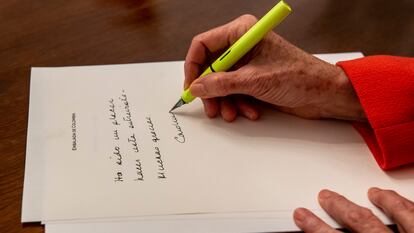 EMBAJADA DE COLOMBIA
Ha sido un placer
hacer esta
Muchas gracias
Carolina